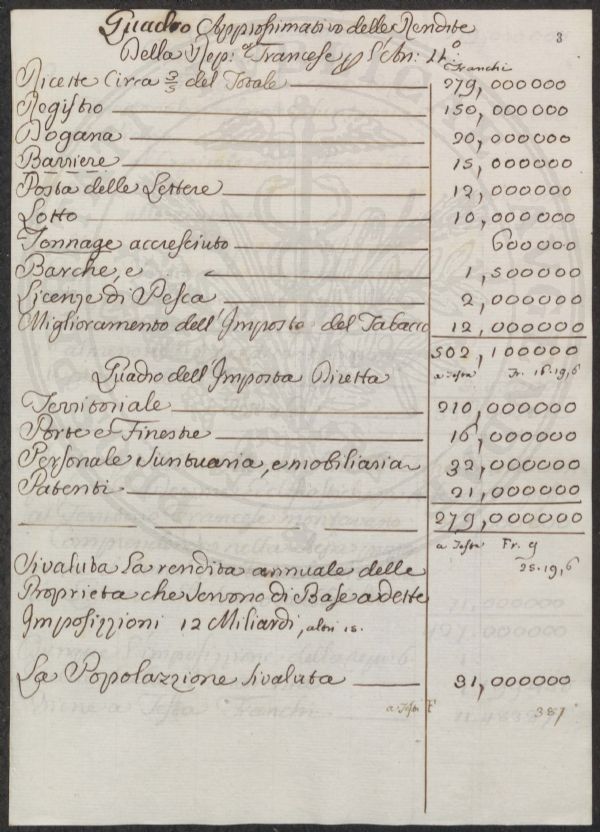 3
Quadro Approssimativo delle Rendite
Della Rep:a Francese p l'An: 11°
Franchi
Ricette Circa 3/5 del Totale 279,000000
Registro 150,000000
Dogana 20,000000
Barriere 15,000000
Posta delle Lettere 12,000000
Lotto 10,000000
Tonnage accresciuto 600000
Barche, e 1,500000
Licenze di Pesca 2,000000
Miglioramento dell'Imposto del Tabacco 12,000000
502,100000
a testa Fr. 16.19,6
Quadro dell'Imposta Diretta
Territoriale 210,000000
Porte e Finestre 16,000000
Personale suntuaria, e mobiliaria 32,000000
Patenti 21,000000
279,000000
a Testa Fr. 9
Si valuta La rendita annuale delle
Proprieta che servono di Base a dette
Imposizzioni 12 Miliardi, altri 15.
La Popolazzione si valuta 31,000000
a Testa F 387